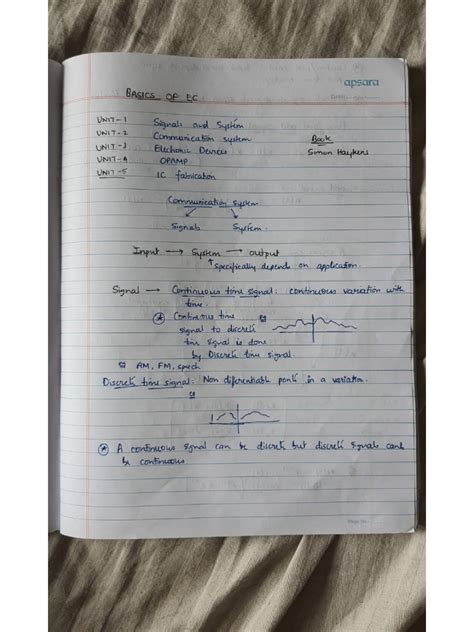 apsara
BASICS OF EC
UNIT-1 Signals and System
UNIT-2 Communication system Book
UNIT-3 Electronic Devices Simon Haykens
UNIT-4 OPAMP
UNIT-5 IC fabrication
Communication system
Signals System
Input → System → output
↑ Specifically depends on application.
Signal → Continuous time signal: continuous variation with
time.
Continous time
signal to discrete
time signal is done
by Discrete time signal.
AM, FM, speech
Discrete time signal: Non diferentiable point in a variation.
A continuous signal can be discret but discret signals cant
be continuous
Page No.